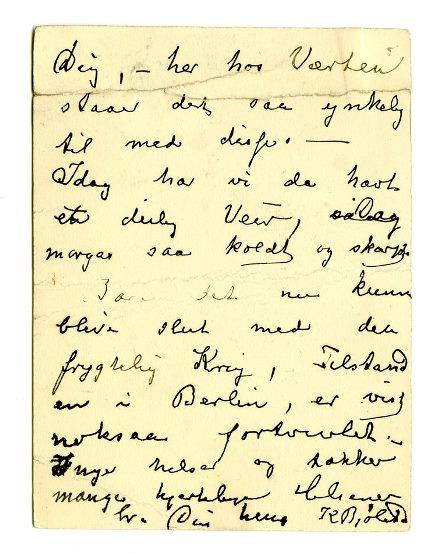 Dig, – her hos Værten
staaer det saa ynkelig
til med disse. —
Idag har vi da havt
et deilig Veir,
morges saa koldt og skarpt
Bare det nu kunn
blive slut med den
frygtelig Krig, Tilstand
en i Berlin, er vist
noksaa fortvivlet.
Inge hilser og takker
mange hjertelige Hilsener
fra Din hen